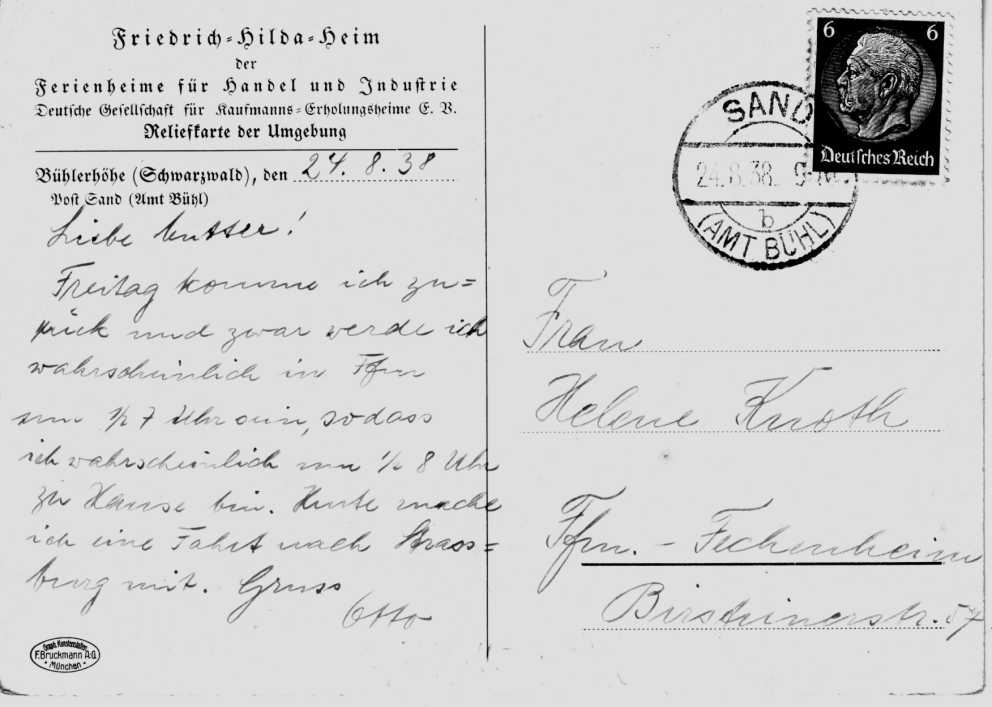 Friedrich-Hilda-Heim
der
Ferienheime für Handel und Industrie
Deutsche Gesellschaft für Kaufmanns-Erholungsheime E. V.
Reliefkarte der Umgebung
Bühlerhöhe (Schwarzwald), den 24. 8. 38
Post Sand (Amt Bühl)
Liebe Mutter!
Freitag komme ich zu=
rück und zwar werde ich
wahrscheinlich in Ffm
um ½ 7 Uhr sein, sodass
ich wahrscheinlich um ½ 8 Uhr
zu Hause bin. Heute mache
ich eine Fahrt nach Strass=
burg mit. Gruss
Otto
Graph. Kunstanstalten
F. Bruckmann A.G.
München
6 6
Deutsches Reich
SAND
24.8.38. 9-
b
(AMT BÜHL)
Frau
Helene Knoth
Ffm. - Fechenheim
Birsteinerstr. 57